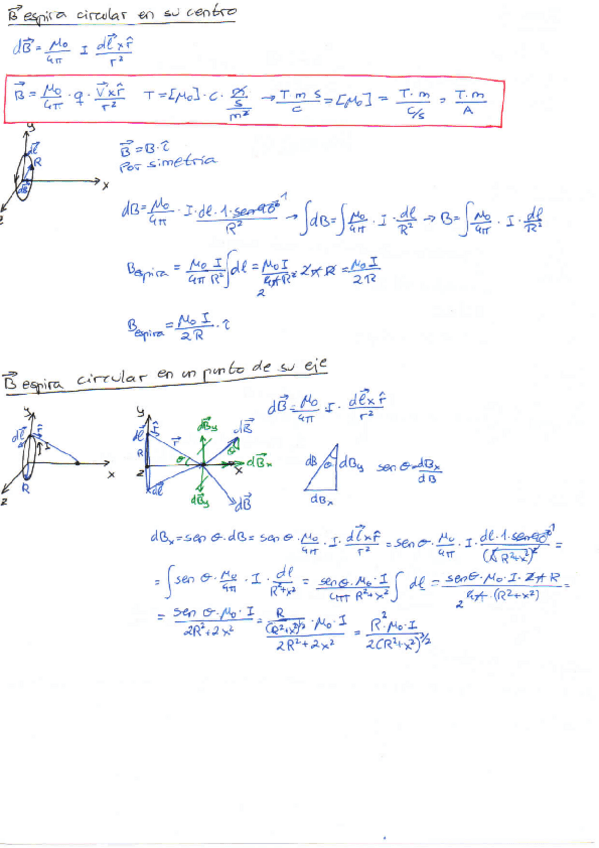 B⃗ espira circular en su centro
dB⃗ = μ₀/4π I dl⃗ x r̂/r²
B⃗ = μ₀/4π · q · v⃗ x r̂/r² T = [μ₀] · C · m/s/m² → T m s/C = [μ₀] = T · m/C/s = T · m/A
y
dl⃗
R
dB⃗
x
z
B⃗ = B · î
Por simetría
dB = μ₀/4π · I · dl · 1 · sen90º¹/R² → ∫dB = ∫μ₀/4π · I · dl/R² → B = ∫μ₀/4π · I · dl/R²
B espira = μ₀ I/4π R² ∫dl = μ₀ I/4π R² 2 π R = μ₀ I/2R
2
B espira = μ₀ I/2R · î
B⃗ espira circular en un punto de su eje
dB⃗ = μ₀/4π · I · dl⃗ x r̂/r²
y
dl⃗ r̂
I
x
z
R
y
dl⃗ r̂
r⃗
R
θ
z
dl⃗
dB⃗y
dB⃗
θ
dB⃗x
x
dB⃗y
dB⃗
dB θ dBy
dBx
sen θ = dBx/dB
dBx = sen θ · dB = sen θ · μ₀/4π · I · dl⃗ x r̂/r² = sen θ · μ₀/4π · I · dl · 1 · sen90º¹/(√R²+x²)² =
= ∫sen θ · μ₀/4π · I · dl/R²+x² = sen θ · μ₀ · I/4π R²+x² ∫ dl = sen θ · μ₀ · I · 2 π R/4π · (R²+x²) =
2
= sen θ · μ₀ · I/2R²+2x² = R/(R²+x²)^1/2 · μ₀ · I/2R²+2x² = R² · μ₀ · I/2(R²+x²)^3/2